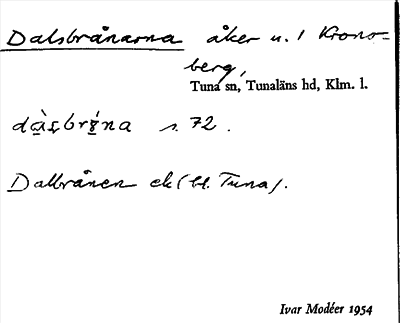 Dalsbrånarna åker u. 1 Krono-
berg,
Tuna sn, Tunaläns hd, Klm. l.
s. 72.
Dalbrånen ek (bl. Tuna).
Ivar Modéer 1954